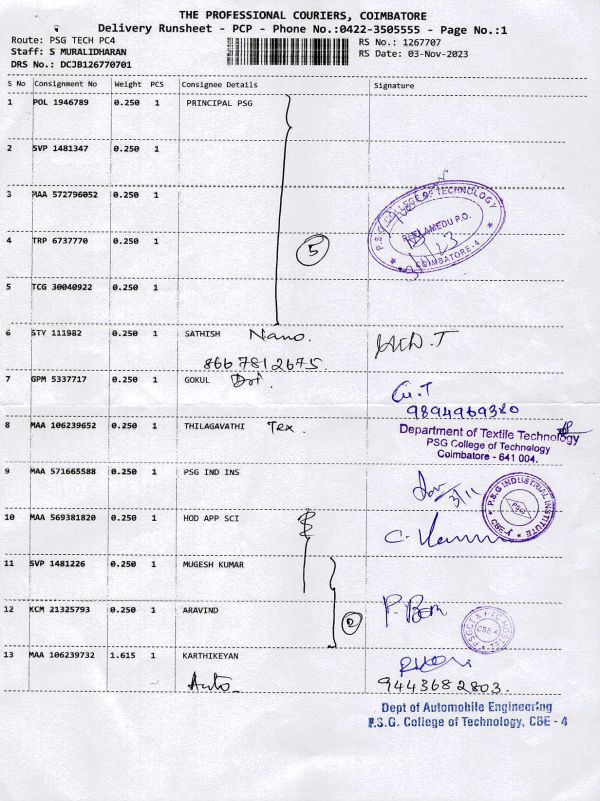 THE PROFESSIONAL COURIERS, COIMBATORE
Delivery Runsheet - PCP - Phone No.:0422-3505555 - Page No.:1
Route: PSG TECH PC4
Staff: S MURALIDHARAN
DRS No.: DCJB126770701
RS No.: 1267707
RS Date: 03-Nov-2023
S No Consignment No Weight PCS Consignee Details Signature
1 POL 1946789 0.250 1 PRINCIPAL PSG
2 SVP 1481347 0.250 1
3 MAA 572796052 0.250 1
4 TRP 6737770 0.250 1
5 TCG 30040922 0.250 1
5
P.S.G. COLLEGE OF TECHNOLOGY
PEELAMEDU P.O.
COIMBATORE-4
6 STY 111982 0.250 1 SATHISH Nano.
8667812675.
7 GPM 5337717 0.250 1 GOKUL
9894969380
8 MAA 106239652 0.250 1 THILAGAVATHI Tex.
Department of Textile Technology
PSG College of Technology
Coimbatore - 641 004.
9 MAA 571665588 0.250 1 PSG IND INS
3/11
P.S.G INDUSTRIAL INSTITUTE
PSG
CBE-4
10 MAA 569381820 0.250 1 HOD APP SCI
11 SVP 1481226 0.250 1 MUGESH KUMAR
12 KCM 21325793 0.250 1 ARAVIND
2
CBE-4
13 MAA 106239732 1.615 1 KARTHIKEYAN
Auto
9443682803.
Dept of Automobile Engineering
P.S.G. College of Technology, CBE - 4